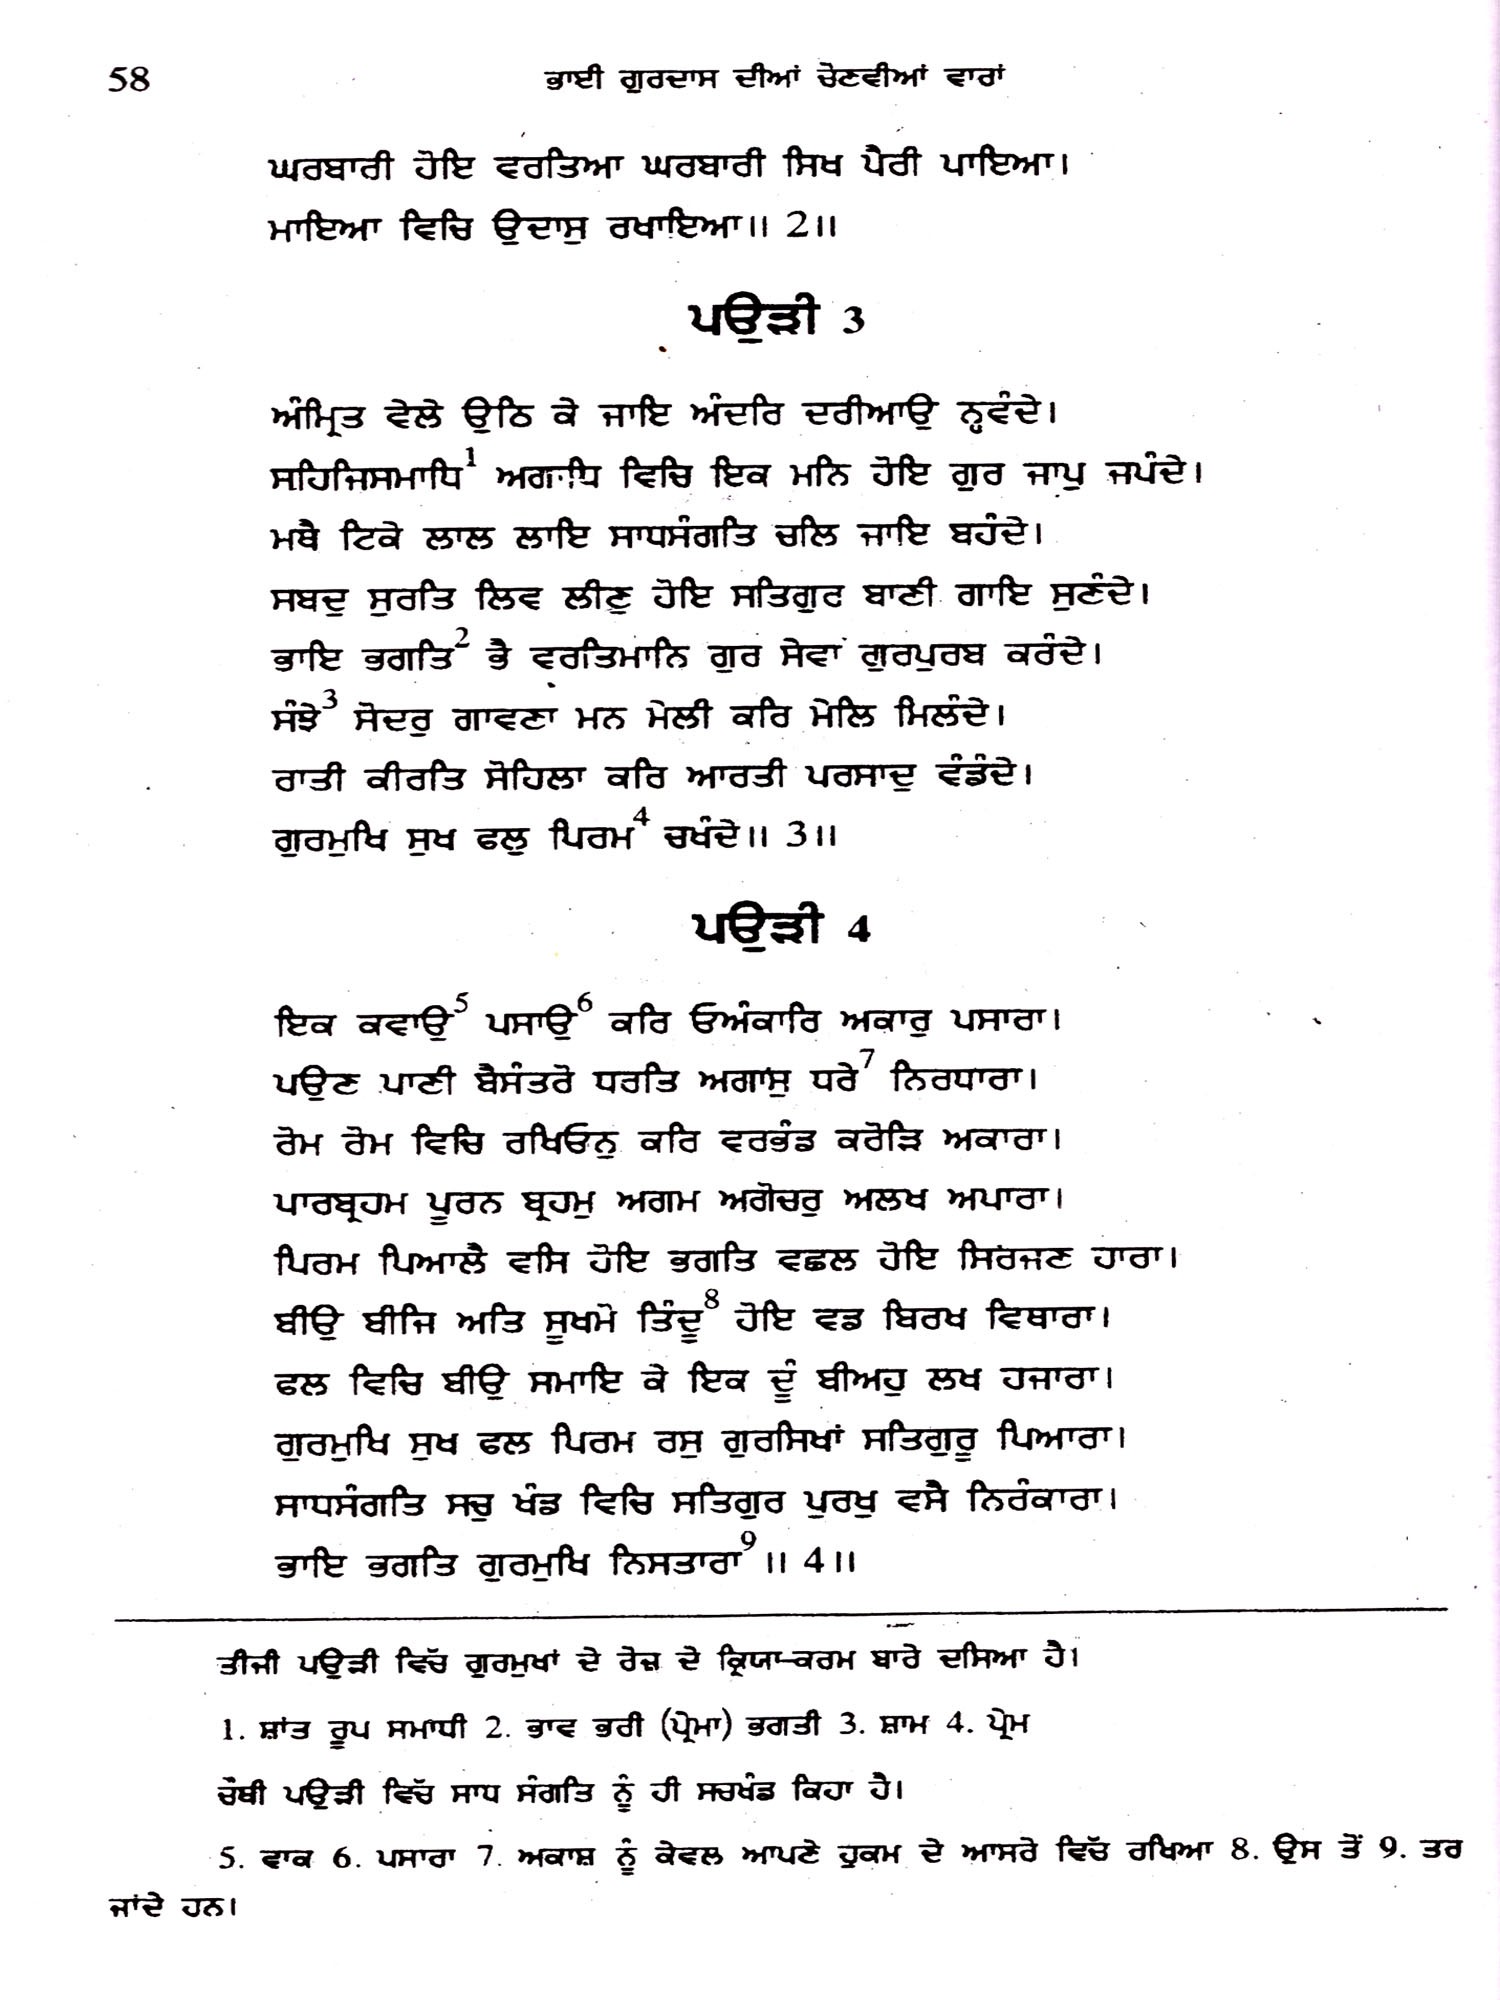 58
ਭਾਈ ਗੁਰਦਾਸ ਦੀਆਂ ਚੋਣਵੀਆਂ ਵਾਰਾਂ
ਘਰਬਾਰੀ ਹੋਇ ਵਰਤਿਆ ਘਰਬਾਰੀ ਸਿਖ ਪੈਰੀ ਪਾਇਆ।
ਮਾਇਆ ਵਿਚਿ ਉਦਾਸੁ ਰਖਾਇਆ॥ 2॥
ਪਉੜੀ 3
ਅੰਮ੍ਰਿਤ ਵੇਲੇ ਉਠਿ ਕੇ ਜਾਇ ਅੰਦਰਿ ਦਰੀਆਉ ਨ੍ਹਵੰਦੇ।
ਸਹਿਜਿਸਮਾਧਿ¹ ਅਗਾਧਿ ਵਿਚਿ ਇਕ ਮਨਿ ਹੋਇ ਗੁਰ ਜਾਪੁ ਜਪੰਦੇ।
ਮਥੈ ਟਿਕੇ ਲਾਲ ਲਾਇ ਸਾਧਸੰਗਤਿ ਚਲਿ ਜਾਇ ਬਹੰਦੇ।
ਸਬਦੁ ਸੁਰਤਿ ਲਿਵ ਲੀਣੁ ਹੋਇ ਸਤਿਗੁਰ ਬਾਣੀ ਗਾਇ ਸੁਣੰਦੇ।
ਭਾਇ ਭਗਤਿ² ਭੈ ਵਰਤਿਮਾਨਿ ਗੁਰ ਸੇਵਾਂ ਗੁਰਪੁਰਬ ਕਰੰਦੇ।
ਸੰਝੇ³ ਸੋਦਰੁ ਗਾਵਣਾ ਮਨ ਮੇਲੀ ਕਰਿ ਮੇਲਿ ਮਿਲੰਦੇ।
ਰਾਤੀ ਕੀਰਤਿ ਸੋਹਿਲਾ ਕਰਿ ਆਰਤੀ ਪਰਸਾਦੁ ਵੰਡੰਦੇ।
ਗੁਰਮੁਖਿ ਸੁਖ ਫਲੁ ਪਿਰਮ⁴ ਚਖੰਦੇ॥ 3॥
ਪਉੜੀ 4
ਇਕ ਕਵਾਉ⁵ ਪਸਾਉ⁶ ਕਰਿ ਓਅੰਕਾਰਿ ਅਕਾਰੁ ਪਸਾਰਾ।
ਪਉਣ ਪਾਣੀ ਬੈਸੰਤਰੋ ਧਰਤਿ ਅਗਾਸੁ ਧਰੇ⁷ ਨਿਰਧਾਰਾ।
ਰੋਮ ਰੋਮ ਵਿਚਿ ਰਖਿਓਨੁ ਕਰਿ ਵਰਭੰਡ ਕਰੋੜਿ ਅਕਾਰਾ।
ਪਾਰਬ੍ਰਹਮ ਪੂਰਨ ਬ੍ਰਹਮੁ ਅਗਮ ਅਗੋਚਰੁ ਅਲਖ ਅਪਾਰਾ।
ਪਿਰਮ ਪਿਆਲੈ ਵਸਿ ਹੋਇ ਭਗਤਿ ਵਛਲ ਹੋਇ ਸਿਰਜਣ ਹਾਰਾ।
ਬੀਉ ਬੀਜਿ ਅਤਿ ਸੂਖਮੋ ਤਿੰਦੂ⁸ ਹੋਇ ਵਡ ਬਿਰਖ ਵਿਥਾਰਾ।
ਫਲ ਵਿਚਿ ਬੀਉ ਸਮਾਇ ਕੇ ਇਕ ਦੂੰ ਬੀਅਹੁ ਲਖ ਹਜਾਰਾ।
ਗੁਰਮੁਖਿ ਸੁਖ ਫਲ ਪਿਰਮ ਰਸੁ ਗੁਰਸਿਖਾਂ ਸਤਿਗੁਰੂ ਪਿਆਰਾ।
ਸਾਧਸੰਗਤਿ ਸਚੁ ਖੰਡ ਵਿਚਿ ਸਤਿਗੁਰ ਪੁਰਖੁ ਵਸੈ ਨਿਰੰਕਾਰਾ।
ਭਾਇ ਭਗਤਿ ਗੁਰਮੁਖਿ ਨਿਸਤਾਰਾ⁹॥ 4॥
ਤੀਜੀ ਪਉੜੀ ਵਿੱਚ ਗੁਰਮੁਖਾਂ ਦੇ ਰੋਜ਼ ਦੇ ਕ੍ਰਿਯਾ-ਕਰਮ ਬਾਰੇ ਦਸਿਆ ਹੈ।
1. ਸ਼ਾਂਤ ਰੂਪ ਸਮਾਧੀ 2. ਭਾਵ ਭਰੀ (ਪ੍ਰੇਮਾ) ਭਗਤੀ 3. ਸ਼ਾਮ 4. ਪ੍ਰੇਮ
ਚੌਥੀ ਪਉੜੀ ਵਿੱਚ ਸਾਧ ਸੰਗਤਿ ਨੂੰ ਹੀ ਸਚਖੰਡ ਕਿਹਾ ਹੈ।
5. ਵਾਕ 6. ਪਸਾਰਾ 7. ਅਕਾਸ਼ ਨੂੰ ਕੇਵਲ ਆਪਣੇ ਹੁਕਮ ਦੇ ਆਸਰੇ ਵਿੱਚ ਰਖਿਆ 8. ਉਸ ਤੋਂ 9. ਤਰ
ਜਾਂਦੇ ਹਨ।